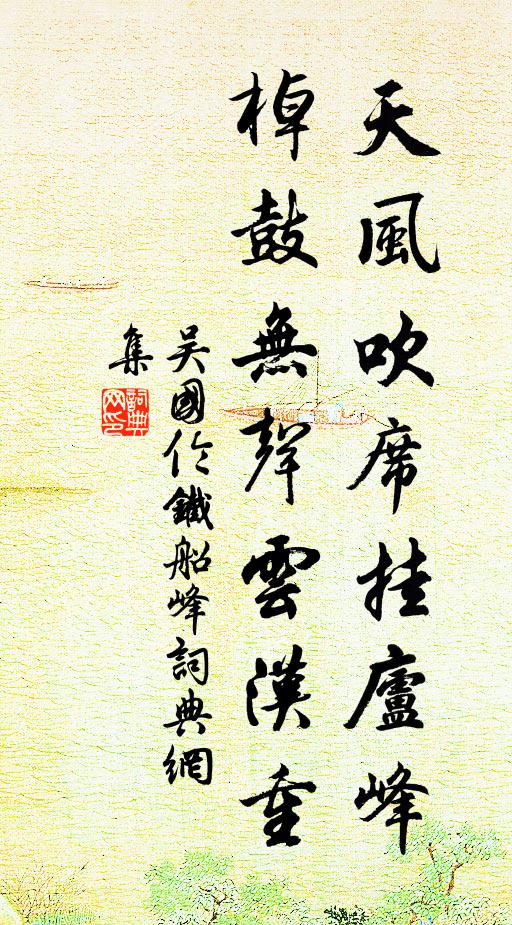 天風吹席挂廬峰
棹鼓無聲雲漢重
吳國伦鐵船峰詞典網
集
詞典
网印